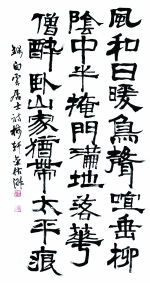 風和日暖鳥聲喧垂柳
陰中半掩門滿地落花
僧醉臥山家猶帶太平痕
錄白雲居士詩